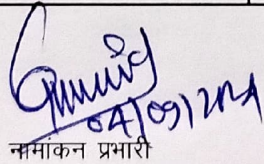 04/09/2024
नामांकन प्रभारी